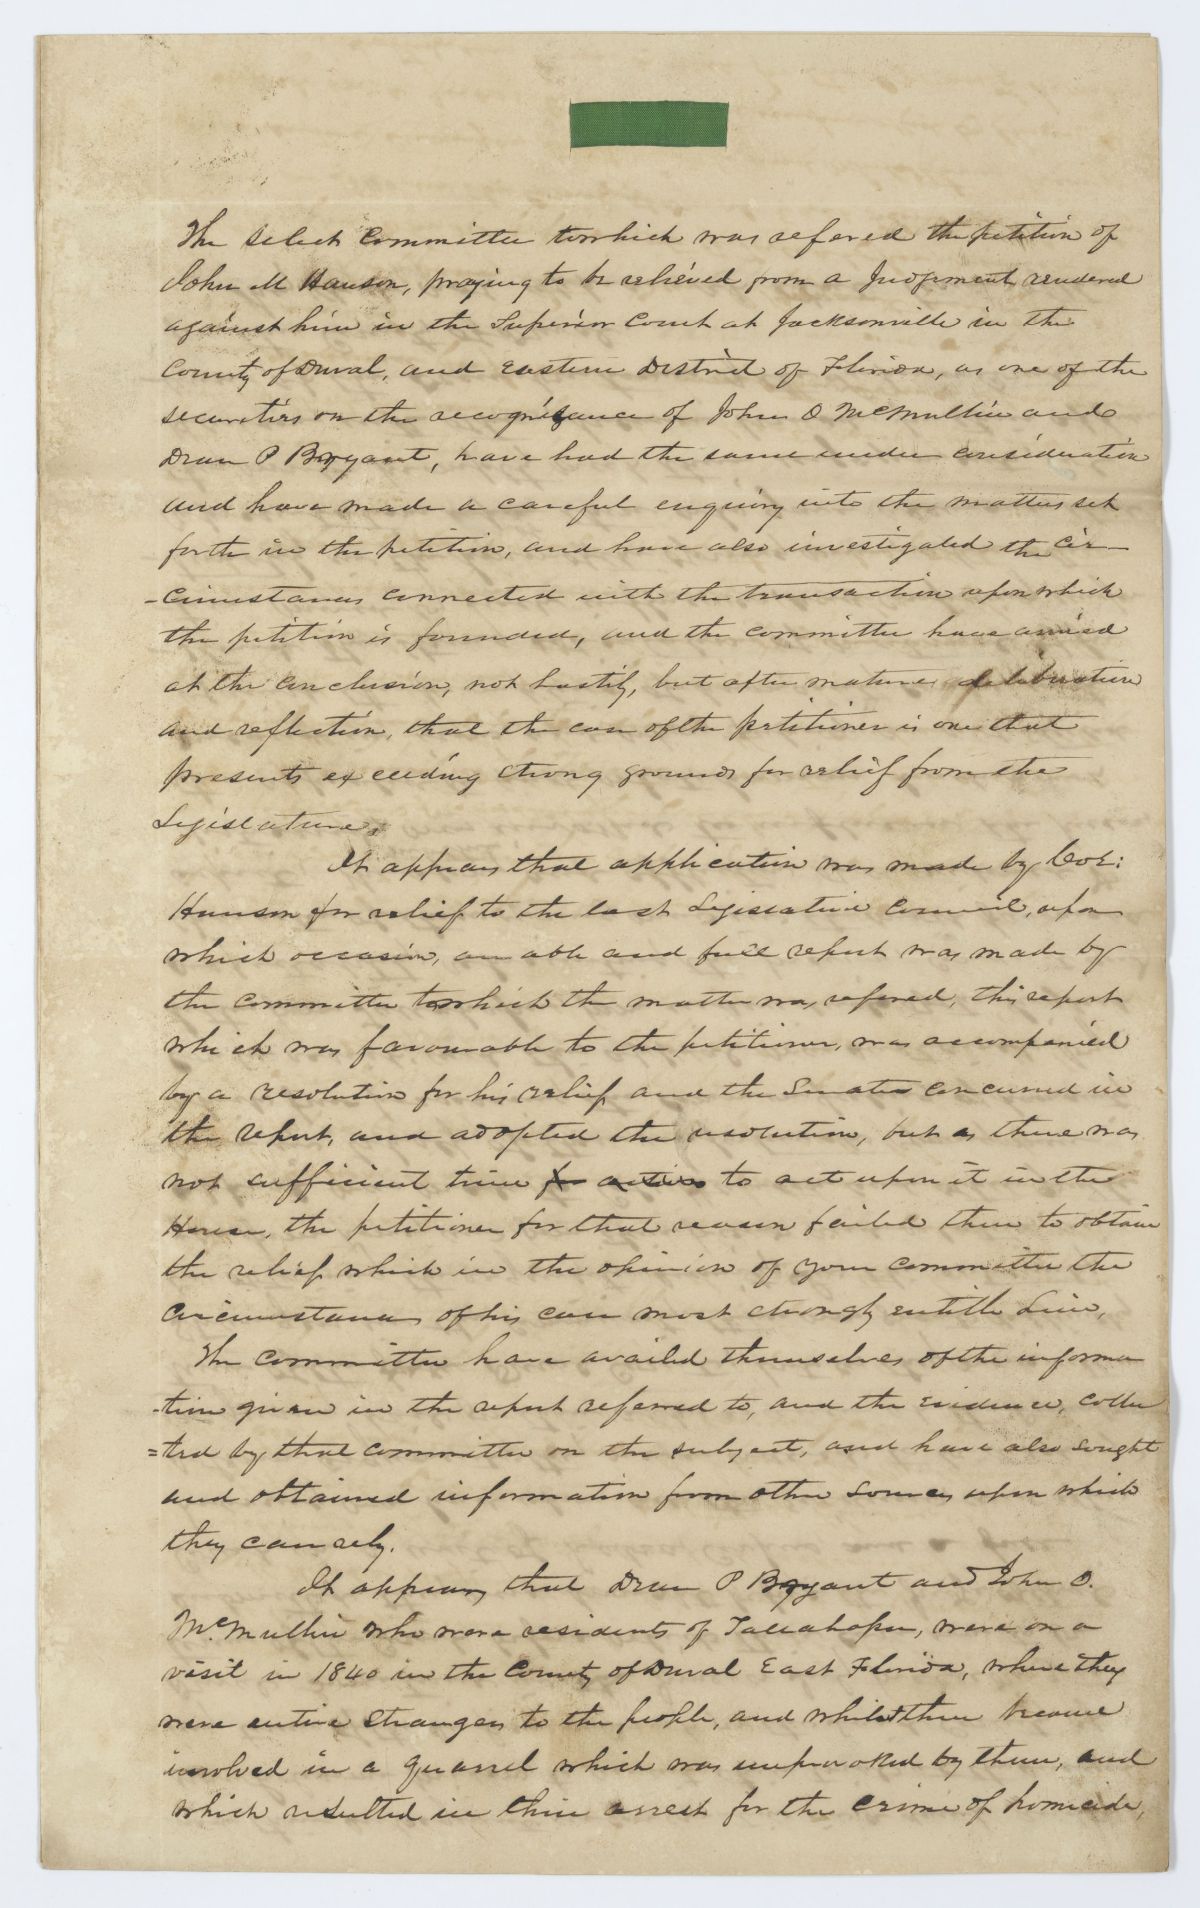 The Select Committee to which was refered the petition of
John M Hanson, praying to be relieved from a Judgement rendered
against him in the Superior Court at Jacksonville in the
County of Duval, and Eastern District of Florida, as one of the
securities on the recognizance of John O McMullin and
Dean P Bryant, have had the same under consideration
and have made a careful enquiry into the matters set
forth in the petition, and have also investigated the cir-
-cumstances connected with the transaction upon which
the petition is founded, and the committee have arrived
at the conclusion, not hastily, but after mature deliberation
and reflection, that the case of the petitioner is one that
presents exceeding strong grounds for relief from the
Legislature.
It appears that application was made by Col:
Hanson for relief to the last Legislative Council, upon
which occasion, an able and full report was made by
the committee to which the matter was refered, this report
which was favourable to the petitioner, was accompanied
by a resolution for his relief, and the Senate concurred in
the report, and adopted the resolution, but as there was
not sufficient time for action to act upon it in the
House, the petitioner for that reason failed then to obtain
the relief which in the opinion of your committee the
circumstances of his case most strongly entitle him.
The committee have availed themselves of the informa
-tion given in the report referred to, and the evidence, collec
=ted by that committee on the subject, and have also sought
and obtained information from other sources upon which
they can rely.
It appears that Dean P Bryant and John O.
McMullin who were residents of Tallahassee, were on a
visit in 1840 in the County of Duval East Florida, where they
were entire strangers to the people, and whilst there became
involved in a quarrel which was unprovoked by them, and
which resulted in their arrest for the crime of homicide,